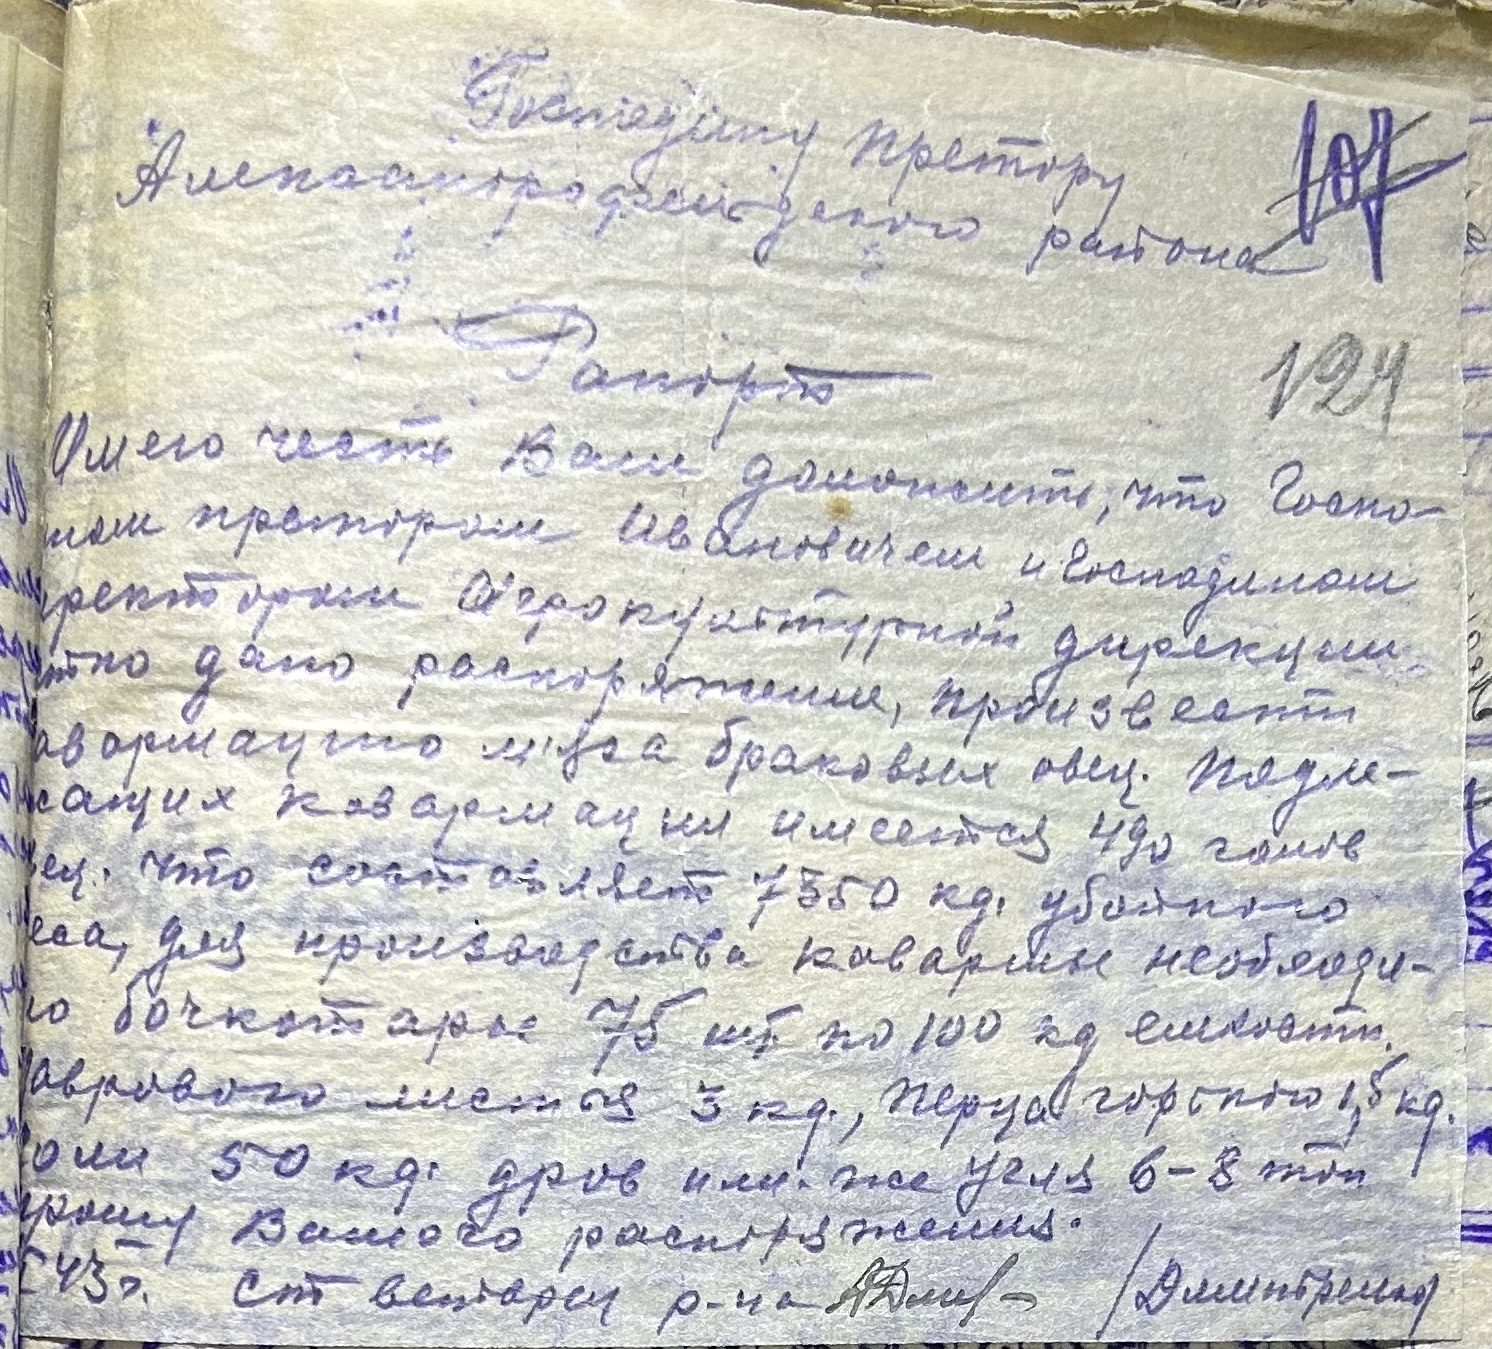 Господину претору
Александрфельдского района
107
Рапорт
124
Имею честь Вам доложить, что Госпо-
ном претором Ивановичем и Господином
иректором Агрокультурной дирекции
тно дано распоряжение, произвест
овармацию мяса браковых овец. Подле-
жащих ковармации имеется 490 голов
вец. что составляет 7350 кг. убойного
еса, для производства кавармы необходи-
мо бочкотары 75 шт по 100 кг емкости.
лаврового листья 3 кг., перца горького 1,5 кг.
соли 50 кг. дров или же угля 6-8 тон
прошу Вашего распоряжения.
43 г. Ст ветврач р-на /Дмитренко